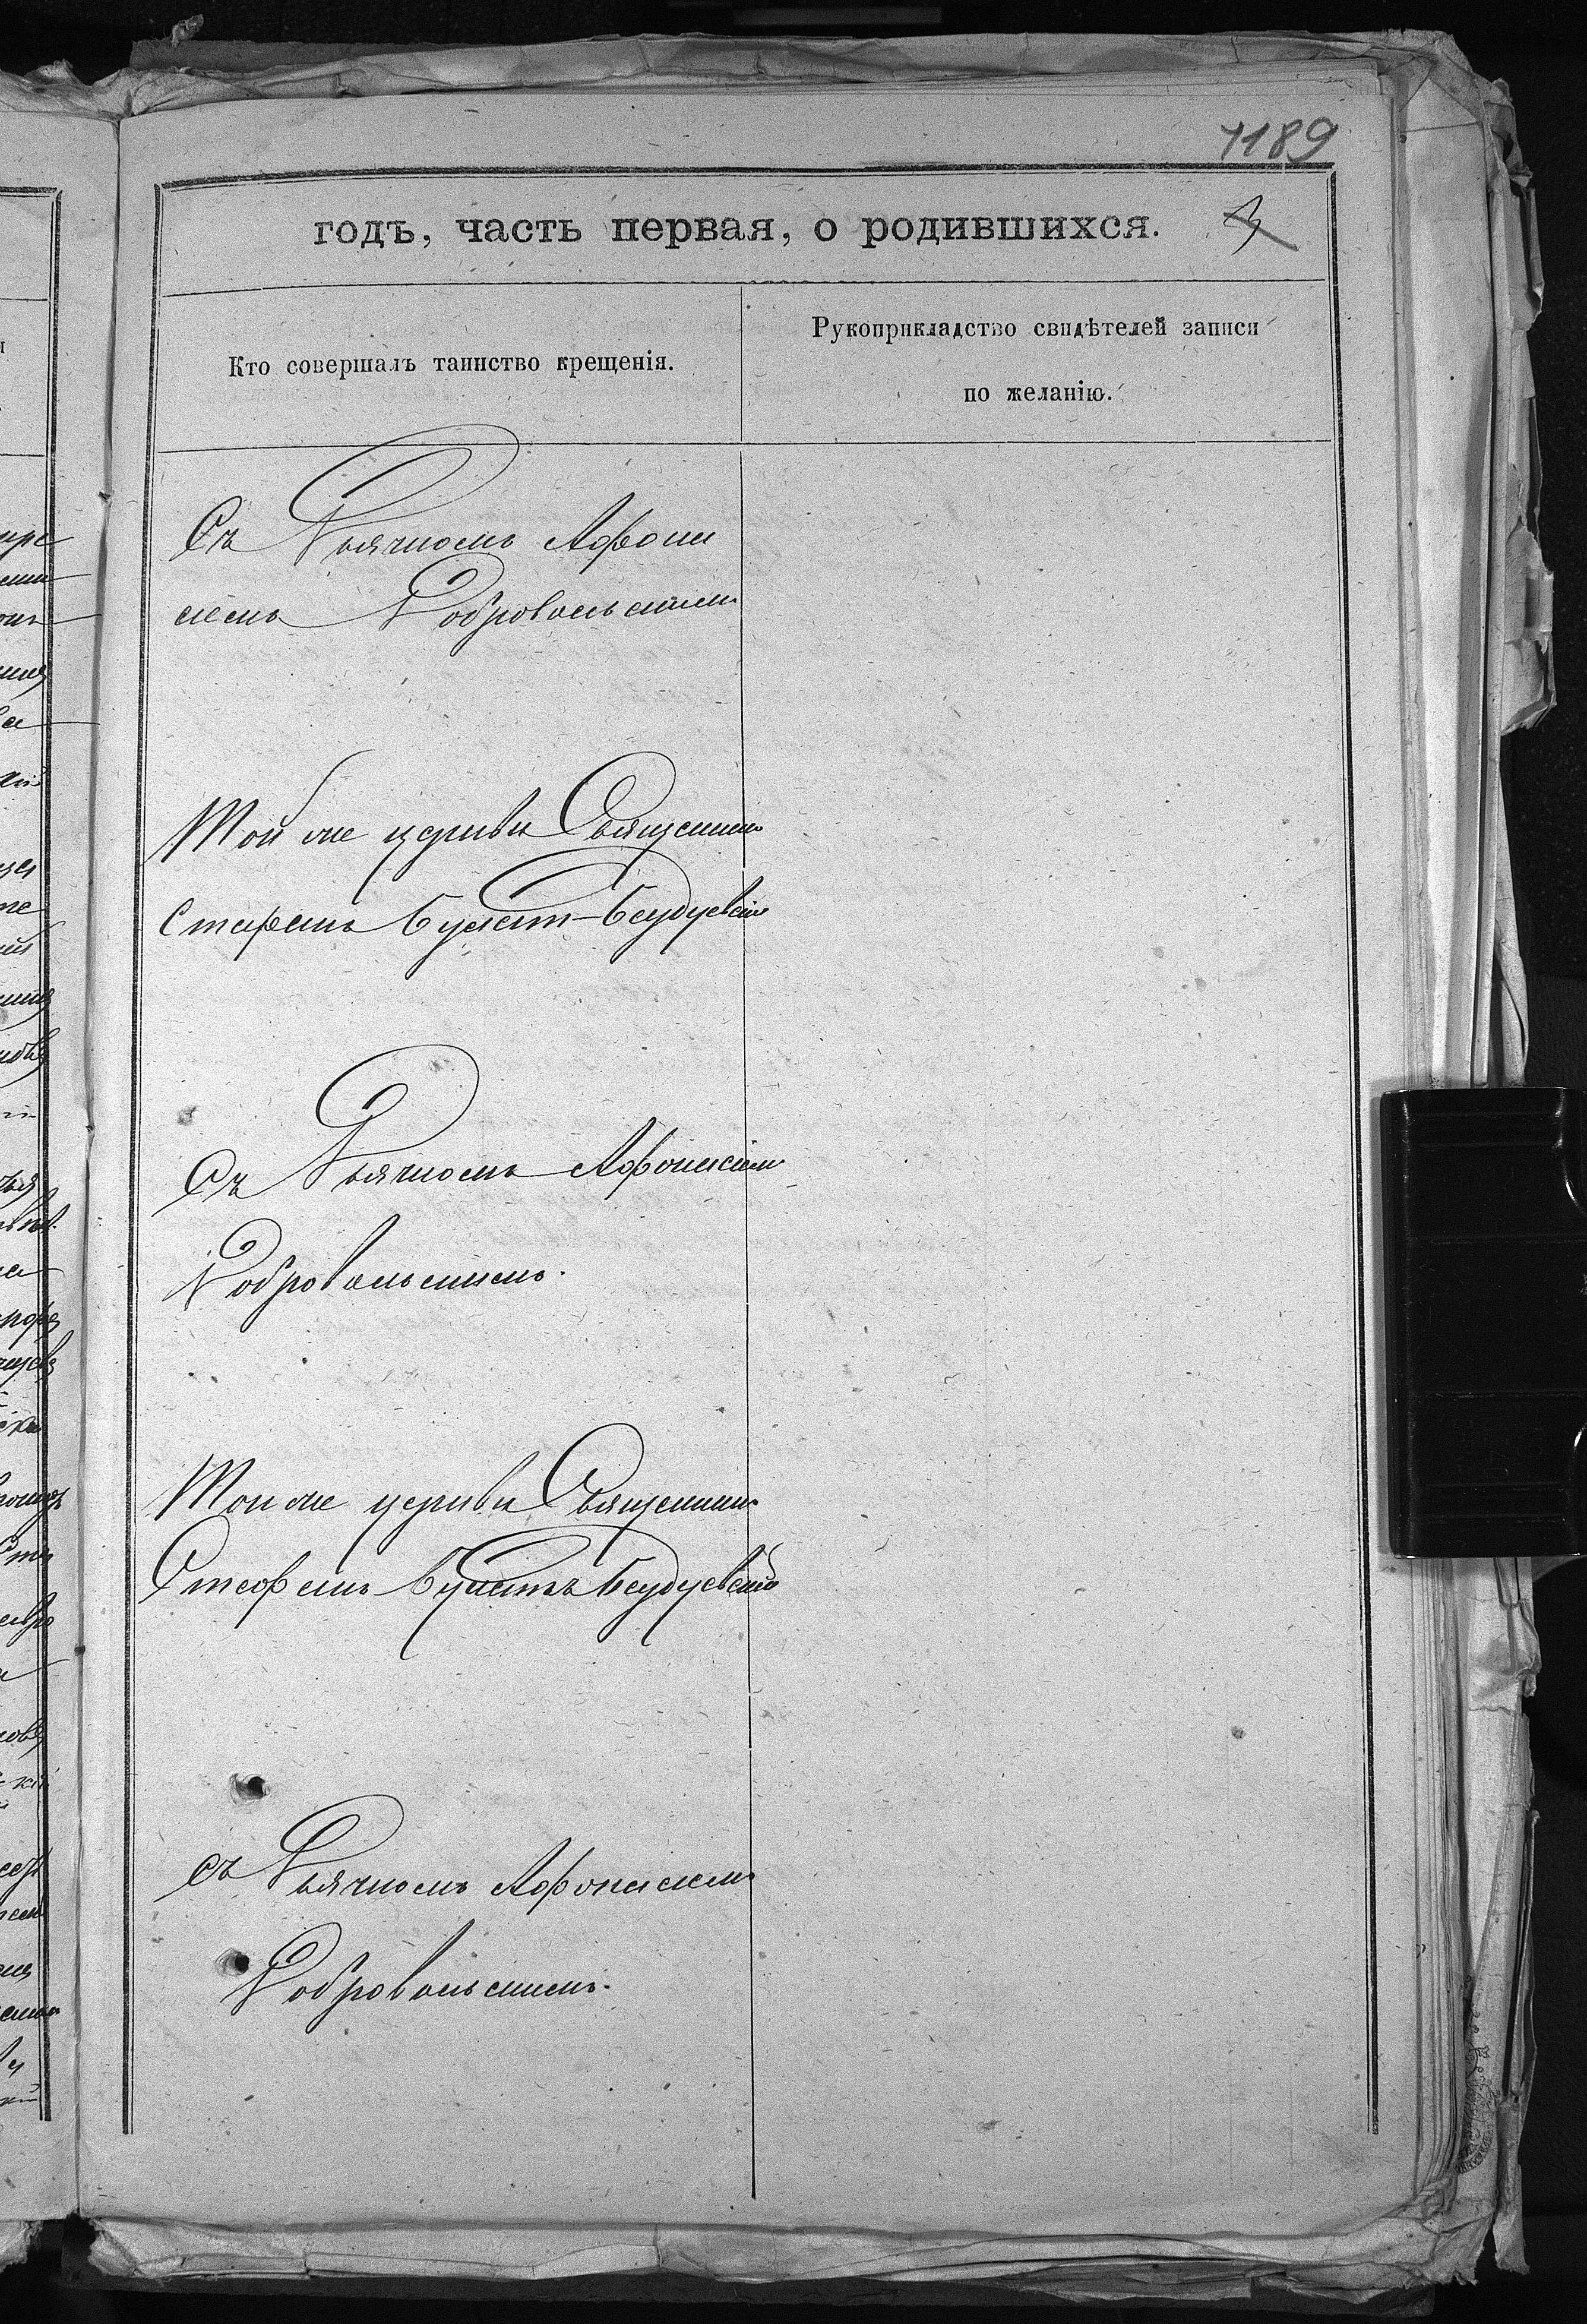 1189
годъ, часть первая, о родившихся. 3
Кто совершалъ таинство крещенія.
Рукоприкладство свидѣтелей записи
по желанію.
Съ Дьячкомъ Афона
сіемъ Добровольскимъ
Той же церкви Священникъ
Стефанъ
Съ Дьячкомъ Афонасіемъ
Добровольскимъ.
Той же церкви Священникъ
Стефанъ
съ Дьячкомъ Афонасіемъ
Добровольскимъ.